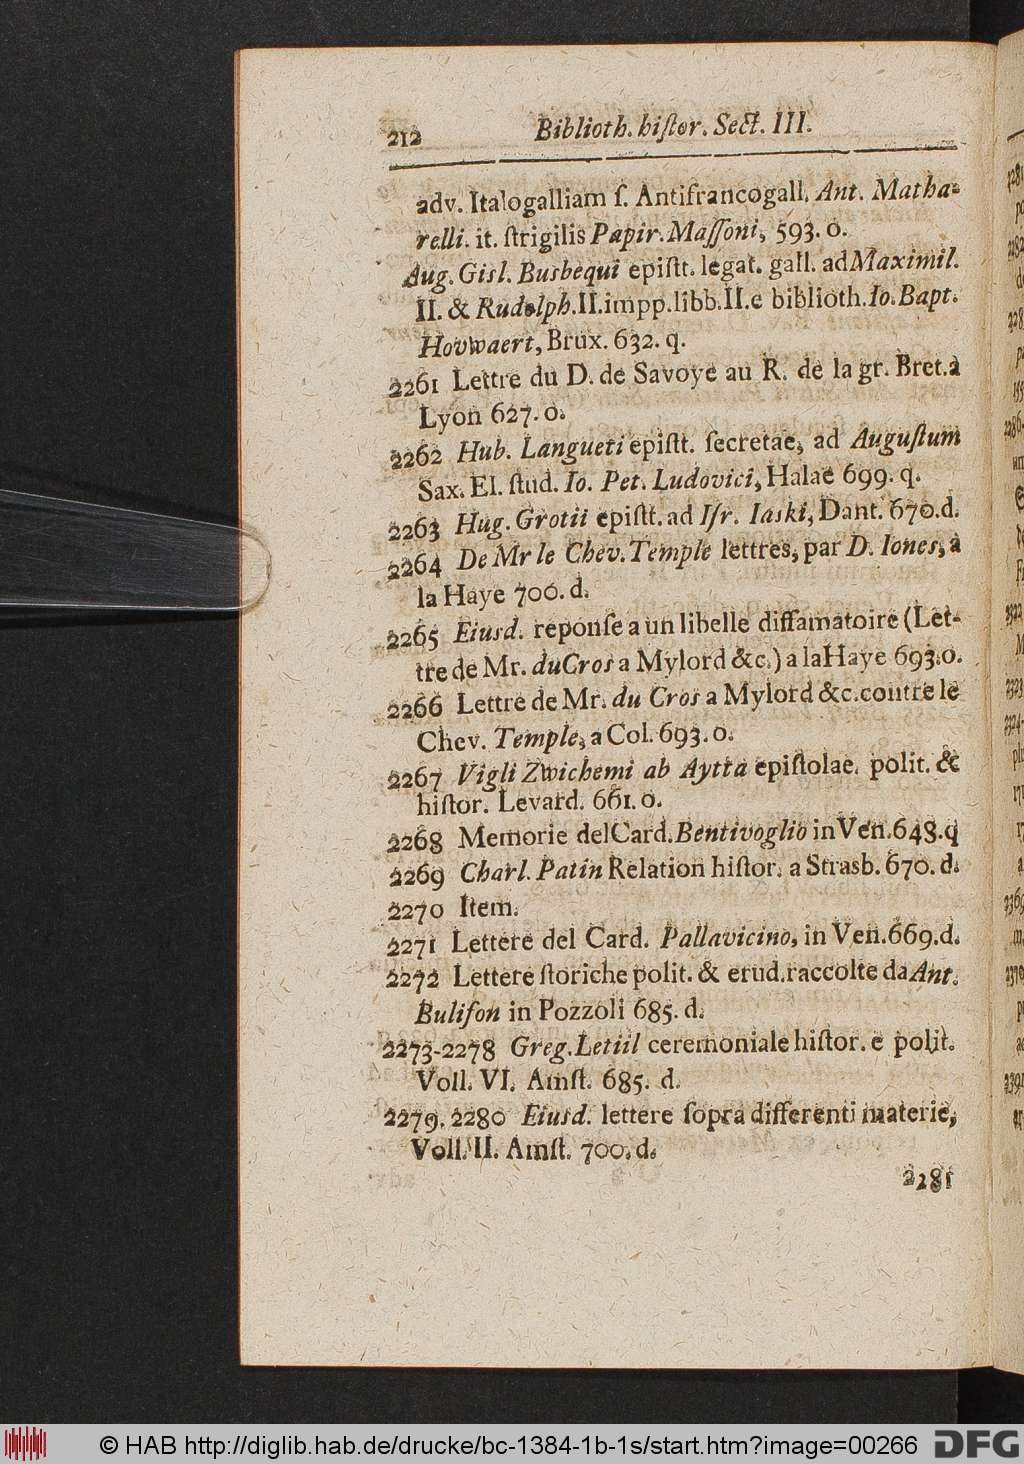 212 Biblioth. histor. Sect. III.
adv. Italogalliam ſ. Antifrancogall. Ant. Matha-
relli. it. ſtrigilis Papir. Maſſoni, 593. o.
Aug. Gisl. Busbequi epiſtt. legat. gall. ad Maximil.
II. & Rudolph. II. impp. libb. II. e biblioth. Io. Bapt.
Hovwaert, Brux. 632. q.
2261 Lettre du D. de Savoye au R. de la gr. Bret. à
Lyon 627. o.
2262 Hub. Langueti epiſtt. ſecretae, ad Auguſtum
Sax. El. ſtud. Io. Pet. Ludovici, Halae 699. q.
2263 Hug. Grotii epiſtt. ad Iſr. Iaski, Dant. 670. d.
2264 De Mr le Chev. Temple lettres, par D. Iones, à
la Haye 700. d.
2265 Eiusd. reponſe a un libelle diffamatoire (Let-
tre de Mr. du Cros a Mylord &c.) a la Haye 693. o.
2266 Lettre de Mr. du Cros a Mylord &c. contre le
Chev. Temple, a Col. 693. o.
2267 Vigli Zwichemi ab Aytta epiſtolae. polit. &
hiſtor. Levard. 661. o.
2268 Memorie del Card. Bentivoglio in Ven. 648. q
2269 Charl. Patin Relation hiſtor. a Strasb. 670. d.
2270 Item.
2271 Lettere del Card. Pallavicino, in Ven. 669. d.
2272 Lettere ſtoriche polit. & erud. raccolte da Ant.
Bulifon in Pozzoli 685. d.
2273-2278 Greg. Letiil ceremoniale hiſtor. e polit.
Voll. VI. Amſt. 685. d.
2279. 2280 Eiusd. lettere ſopra differenti materie,
Voll. II. Amſt. 700. d.
2281
© HAB http://diglib.hab.de/drucke/bc-1384-1b-1s/start.htm?image=00266 DFG